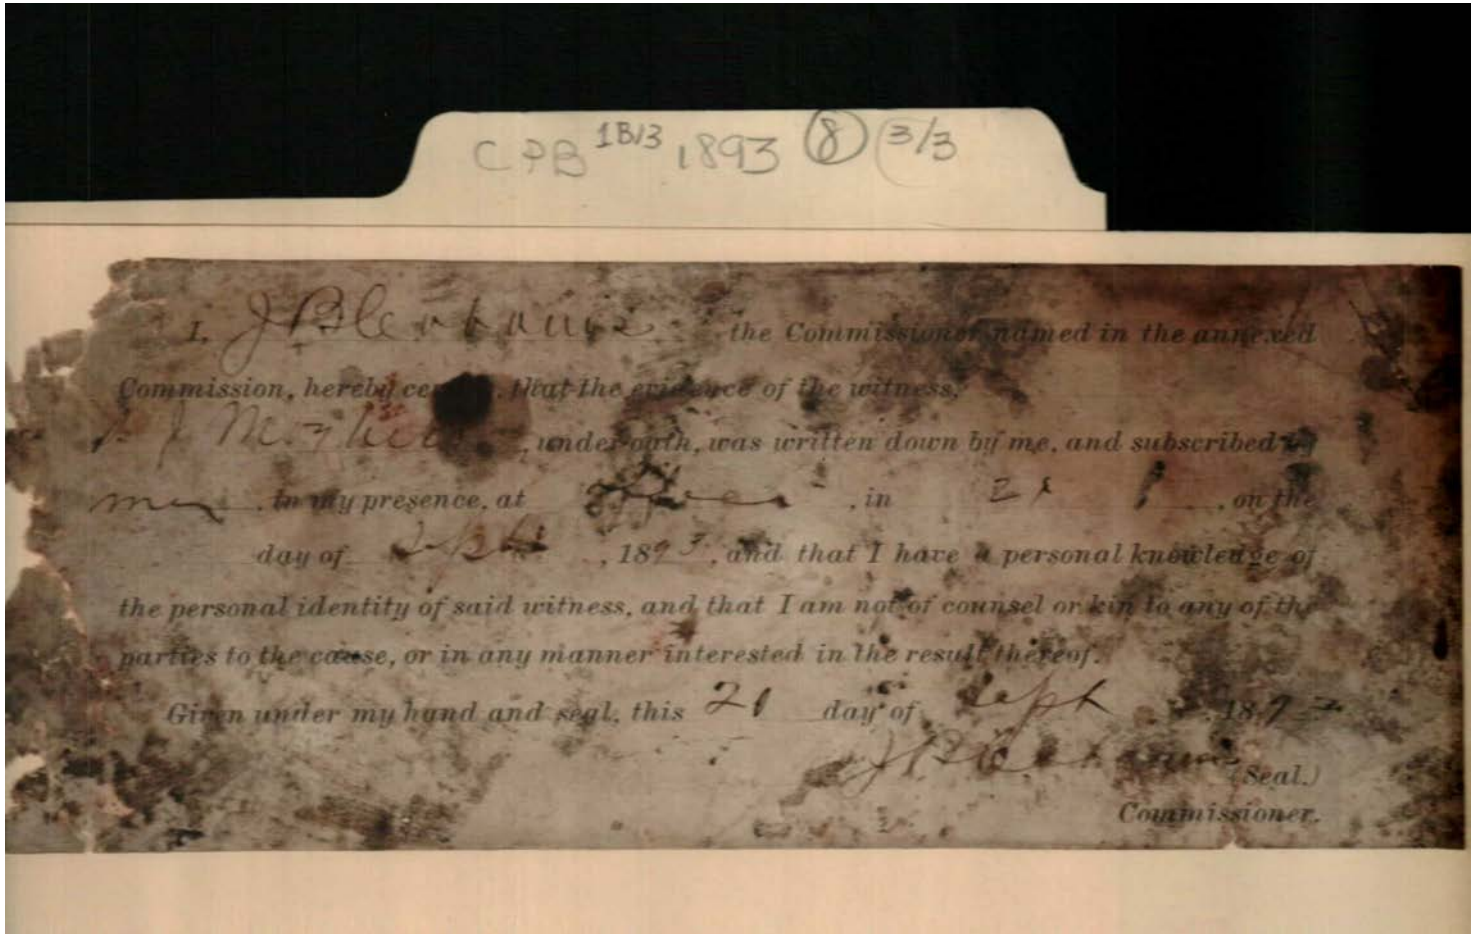 CPB 1B13 1893 8 3/3
I, the Commissioner named in the annexed
Commission, hereby that the evidence of the witness,
, under oath, was written down by me, and subscribed by
in my presence, at , in 21 , on the
day of Sept , 1893, and that I have a personal knowledge of
the personal identity of said witness, and that I am not of counsel or kin to any of the
parties to the cause, or in any manner interested in the result thereof.
Given under my hand and seal, this 21 day of Sept 189
(Seal.)
Commissioner.